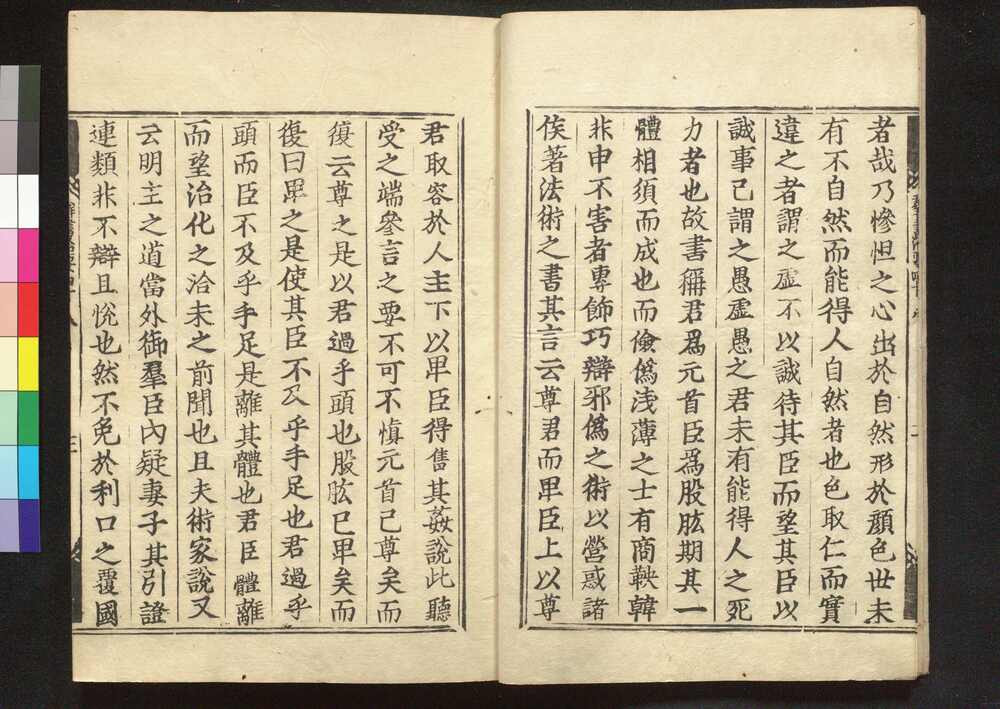 者哉乃慘怛之心出於自然形於顔色世未
有不自然而能得人自然者也色取仁而實
違之者謂之虛不以誠待其臣而望其臣以
誠事己謂之愚虛愚之君未有能得人之死
力者也故書稱君爲元首臣爲股肱期其一
體相須而成也而儉僞淺薄之士有商鞅韓
非申不害者專飾巧辯邪僞之術以營惑諸
侯著法術之書其言云尊君而卑臣上以尊
君取容於人主下以卑臣得售其姦說此聽
受之端參言之要不可不愼元首已尊矣而
復云尊之是以君過乎頭也股肱已卑矣而
復曰卑之是使其臣不及乎手足也君過乎
頭而臣不及乎手足是離其體也君臣體離
而望治化之洽未之前聞也且夫術家說又
云明主之道當外御羣臣內疑妻子其引證
連類非不辯且悅也然不免於利口之覆國